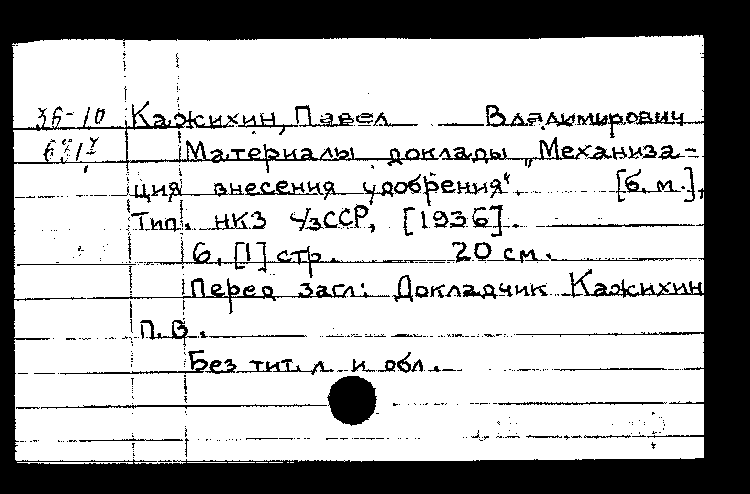 36-10 Кажихин, Павел Владимирович
Материалы доклады „Механиза-
ция внесения удобрения“. [б. м.],
Тип. НКЗ УзССР, [1936].
6, [1] стр. 20 см.
Перед загл: Докладчик Кажихин
П. В.
Без тит. л и обл.